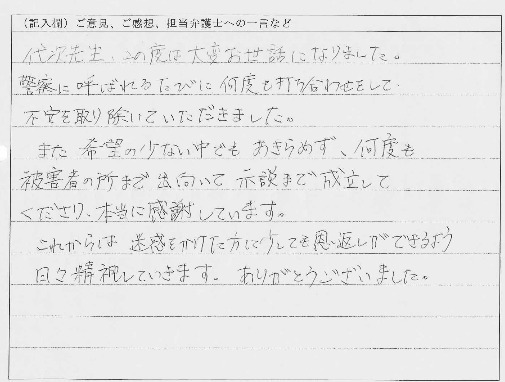 (記入欄)ご意見、ご感想、担当弁護士への一言など
先生、この度は大変お世話になりました。
警察に呼ばれるたびに何度も打ち合わせをして
不安を取り除いていただきました。
また 希望の少ない中でも あきらめず、何度も
被害者の所まで出向いて 示談まで成立して
くださり、本当に感謝しています。
これからは 迷惑をかけた方に少しでも恩返しができるよう
日々精神していきます。ありがとうございました。